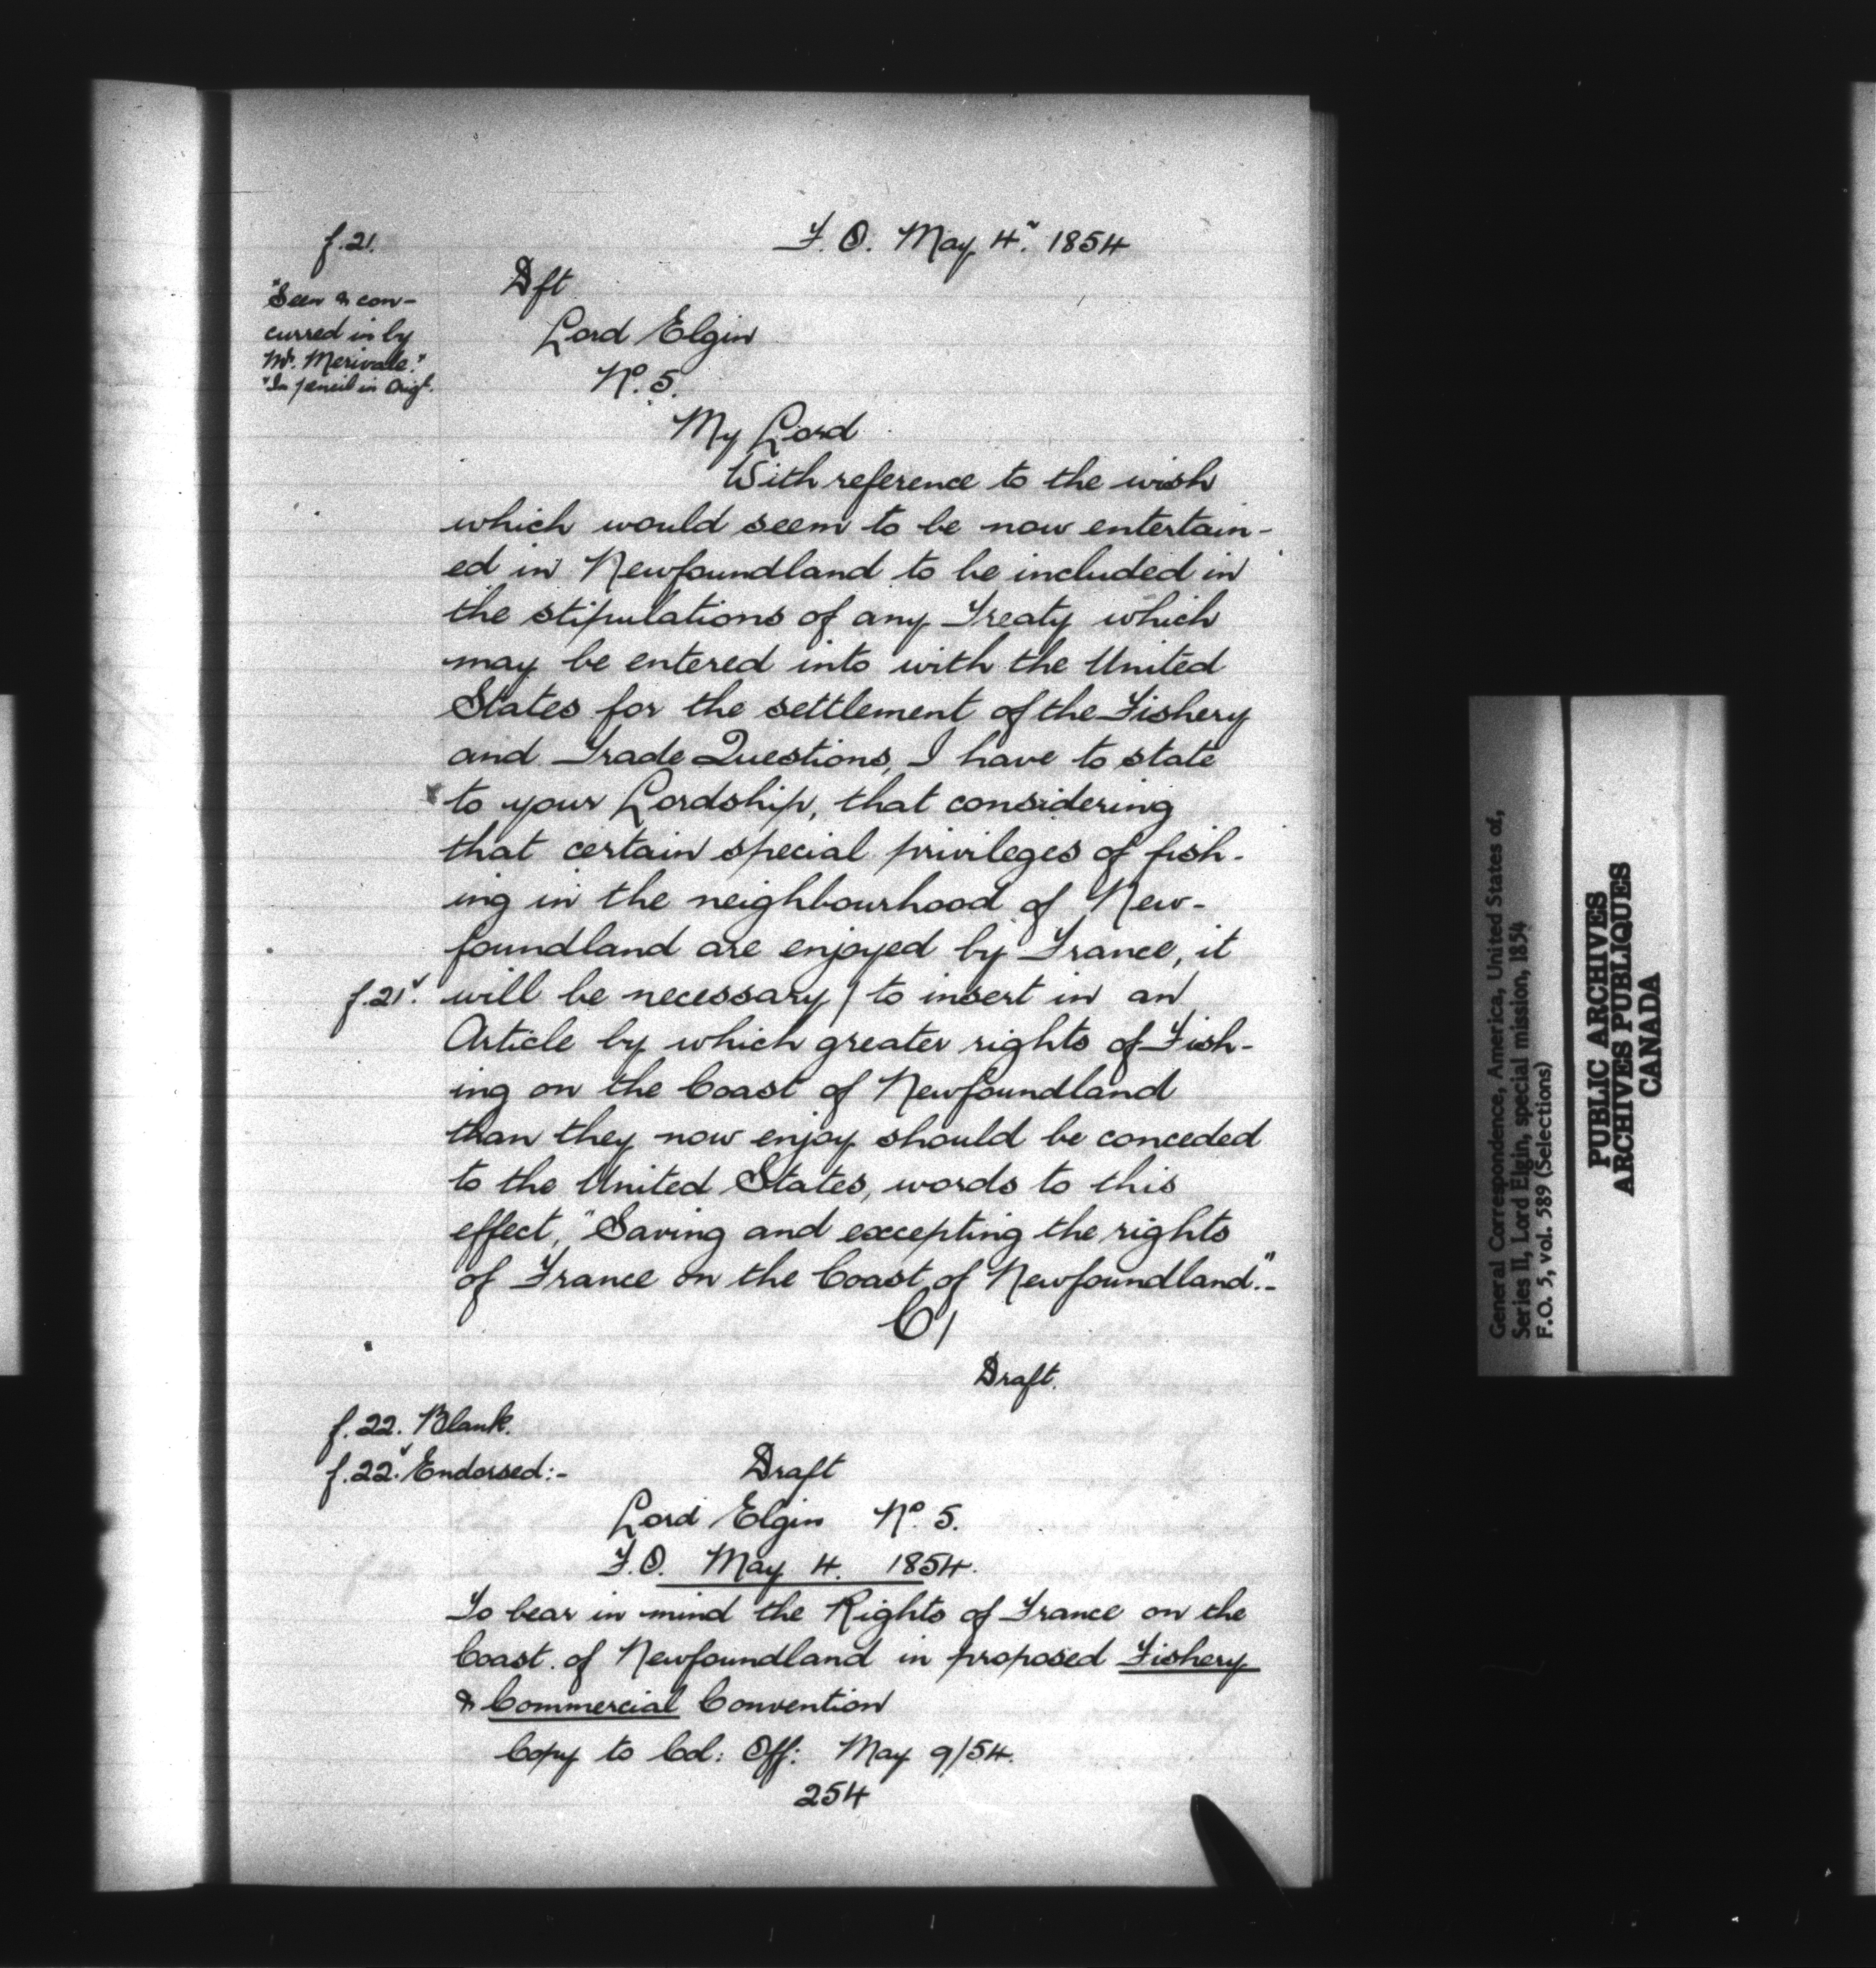 f.21.
F.O. May 4. 1854
"Seen & con-
curred in by
Mr. Merivale."
"In pencil in Origl.
Dft
Lord Elgin
No. 5.
My Lord
With reference to the wish
which would seem to be now entertain-
ed in Newfoundland to be included in
the stipulations of any Treaty which
may be entered into with the United
States for the settlement of the Fishery
and Trade Questions, I have to state
to your Lordship, that considering
that certain special privileges of fish-
ing in the neighbourhood of New-
foundland are enjoyed by France, it
f.21v. will be necessary / to insert in an
Article by which greater rights of Fish-
ing on the Coast of Newfoundland
than they now enjoy should be conceded
to the United States, words to this
effect, "Saving and excepting the rights
of France on the Coast of Newfoundland".-
C/
Draft.
f.22. Blank.
f.22v. Endorsed:- Draft
Lord Elgin No. 5.
F.O. May 4. 1854.
To bear in mind the Rights of France on the
Coast. of Newfoundland in proposed Fishery
& Commercial Convention
Copy to Col: Off: May 9/54.
254
General Correspondence, America, United States of,
Series II, Lord Elgin, special mission, 1854
F.O. 5, vol. 589 (Selections)
PUBLIC ARCHIVES
ARCHIVES PUBLIQUES
CANADA